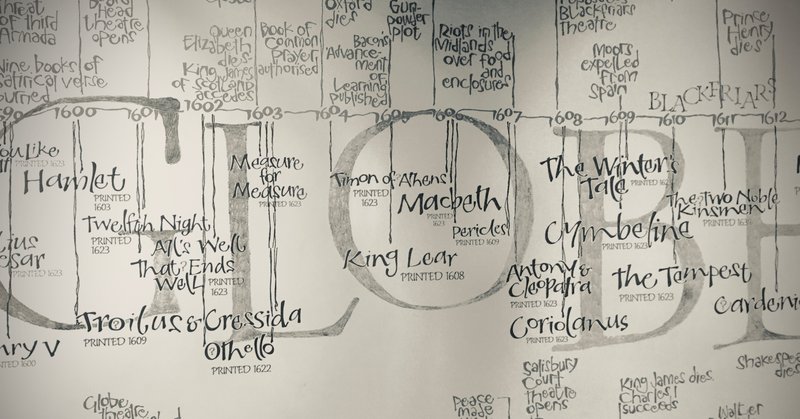 threat
of third
Armada
Grand
head
theatre
opens
Queen
Elizabeth
dies
King James
of Scotland
accedes
Book of
Common
Prayer
authorised
Oxford
dies
Bacon's
'Advance-
ment
of
Learning'
published
Gun-
powder
plot
Riots in the
Midlands
over food
and
enclosures
Blackfriars
Theatre
Moors
expelled
from
Spain
Prince
Henry
dies
Nine books of
satirical verse
burned
BLACKFRIARS
1600
1602
1603
1604
1605
1606
1607
1608
1609
1610
1611
1612
GLOBE
you like
PRINTED 1623
Hamlet
PRINTED
1603
Twelfth Night
PRINTED
1623
All's Well
That Ends
Well
PRINTED
1623
Measure
for
Measure
PRINTED 1623
Timon of Athens
PRINTED
1623
Macbeth
PRINTED
1623
Pericles
PRINTED 1609
King Lear
PRINTED 1608
The Winter's
Tale
PRINTED 1623
The Two Noble
Kinsmen
PRINTED 1634
Cymbeline
PRINTED 1623
Antony &
Cleopatra
PRINTED 1623
The Tempest
PRINTED 1623
Coriolanus
PRINTED 1623
Cardenio
lius
esar
PRINTED 1623
Troilus & Cressida
PRINTED 1609
Othello
PRINTED 1622
nry V
PRINTED 1600
Globe
theatre
Peace
made
Salisbury
Court
theatre
opens
King James dies.
Charles I
succeeds
Shakespea
dies
Walter